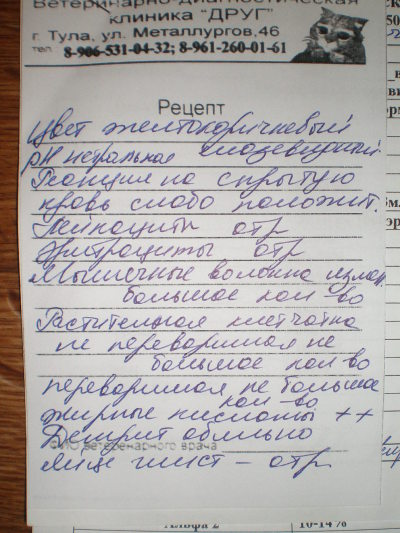 Ветеринарно-диагностическая
клиника "ДРУГ"
г. Тула, ул. Металлургов,46
тел. 8-906-531-04-32; 8-961-260-01-61
Рецепт
Цвет желтокоричневый
pH нетральная
Реакция на скрытую
кровь слабо положит.
Лейкоциты отр
Эритроциты отр
Мышечные волокна измен.
большое кол-во
Растительная клетчатка
не переваримая не
большое кол-во
переваримая не большое
кол-во
жирные кислоты ++
Детрит обильно
ФИО ветеринарного врача
Яйце глист - отр
Альфа 2
10-14%